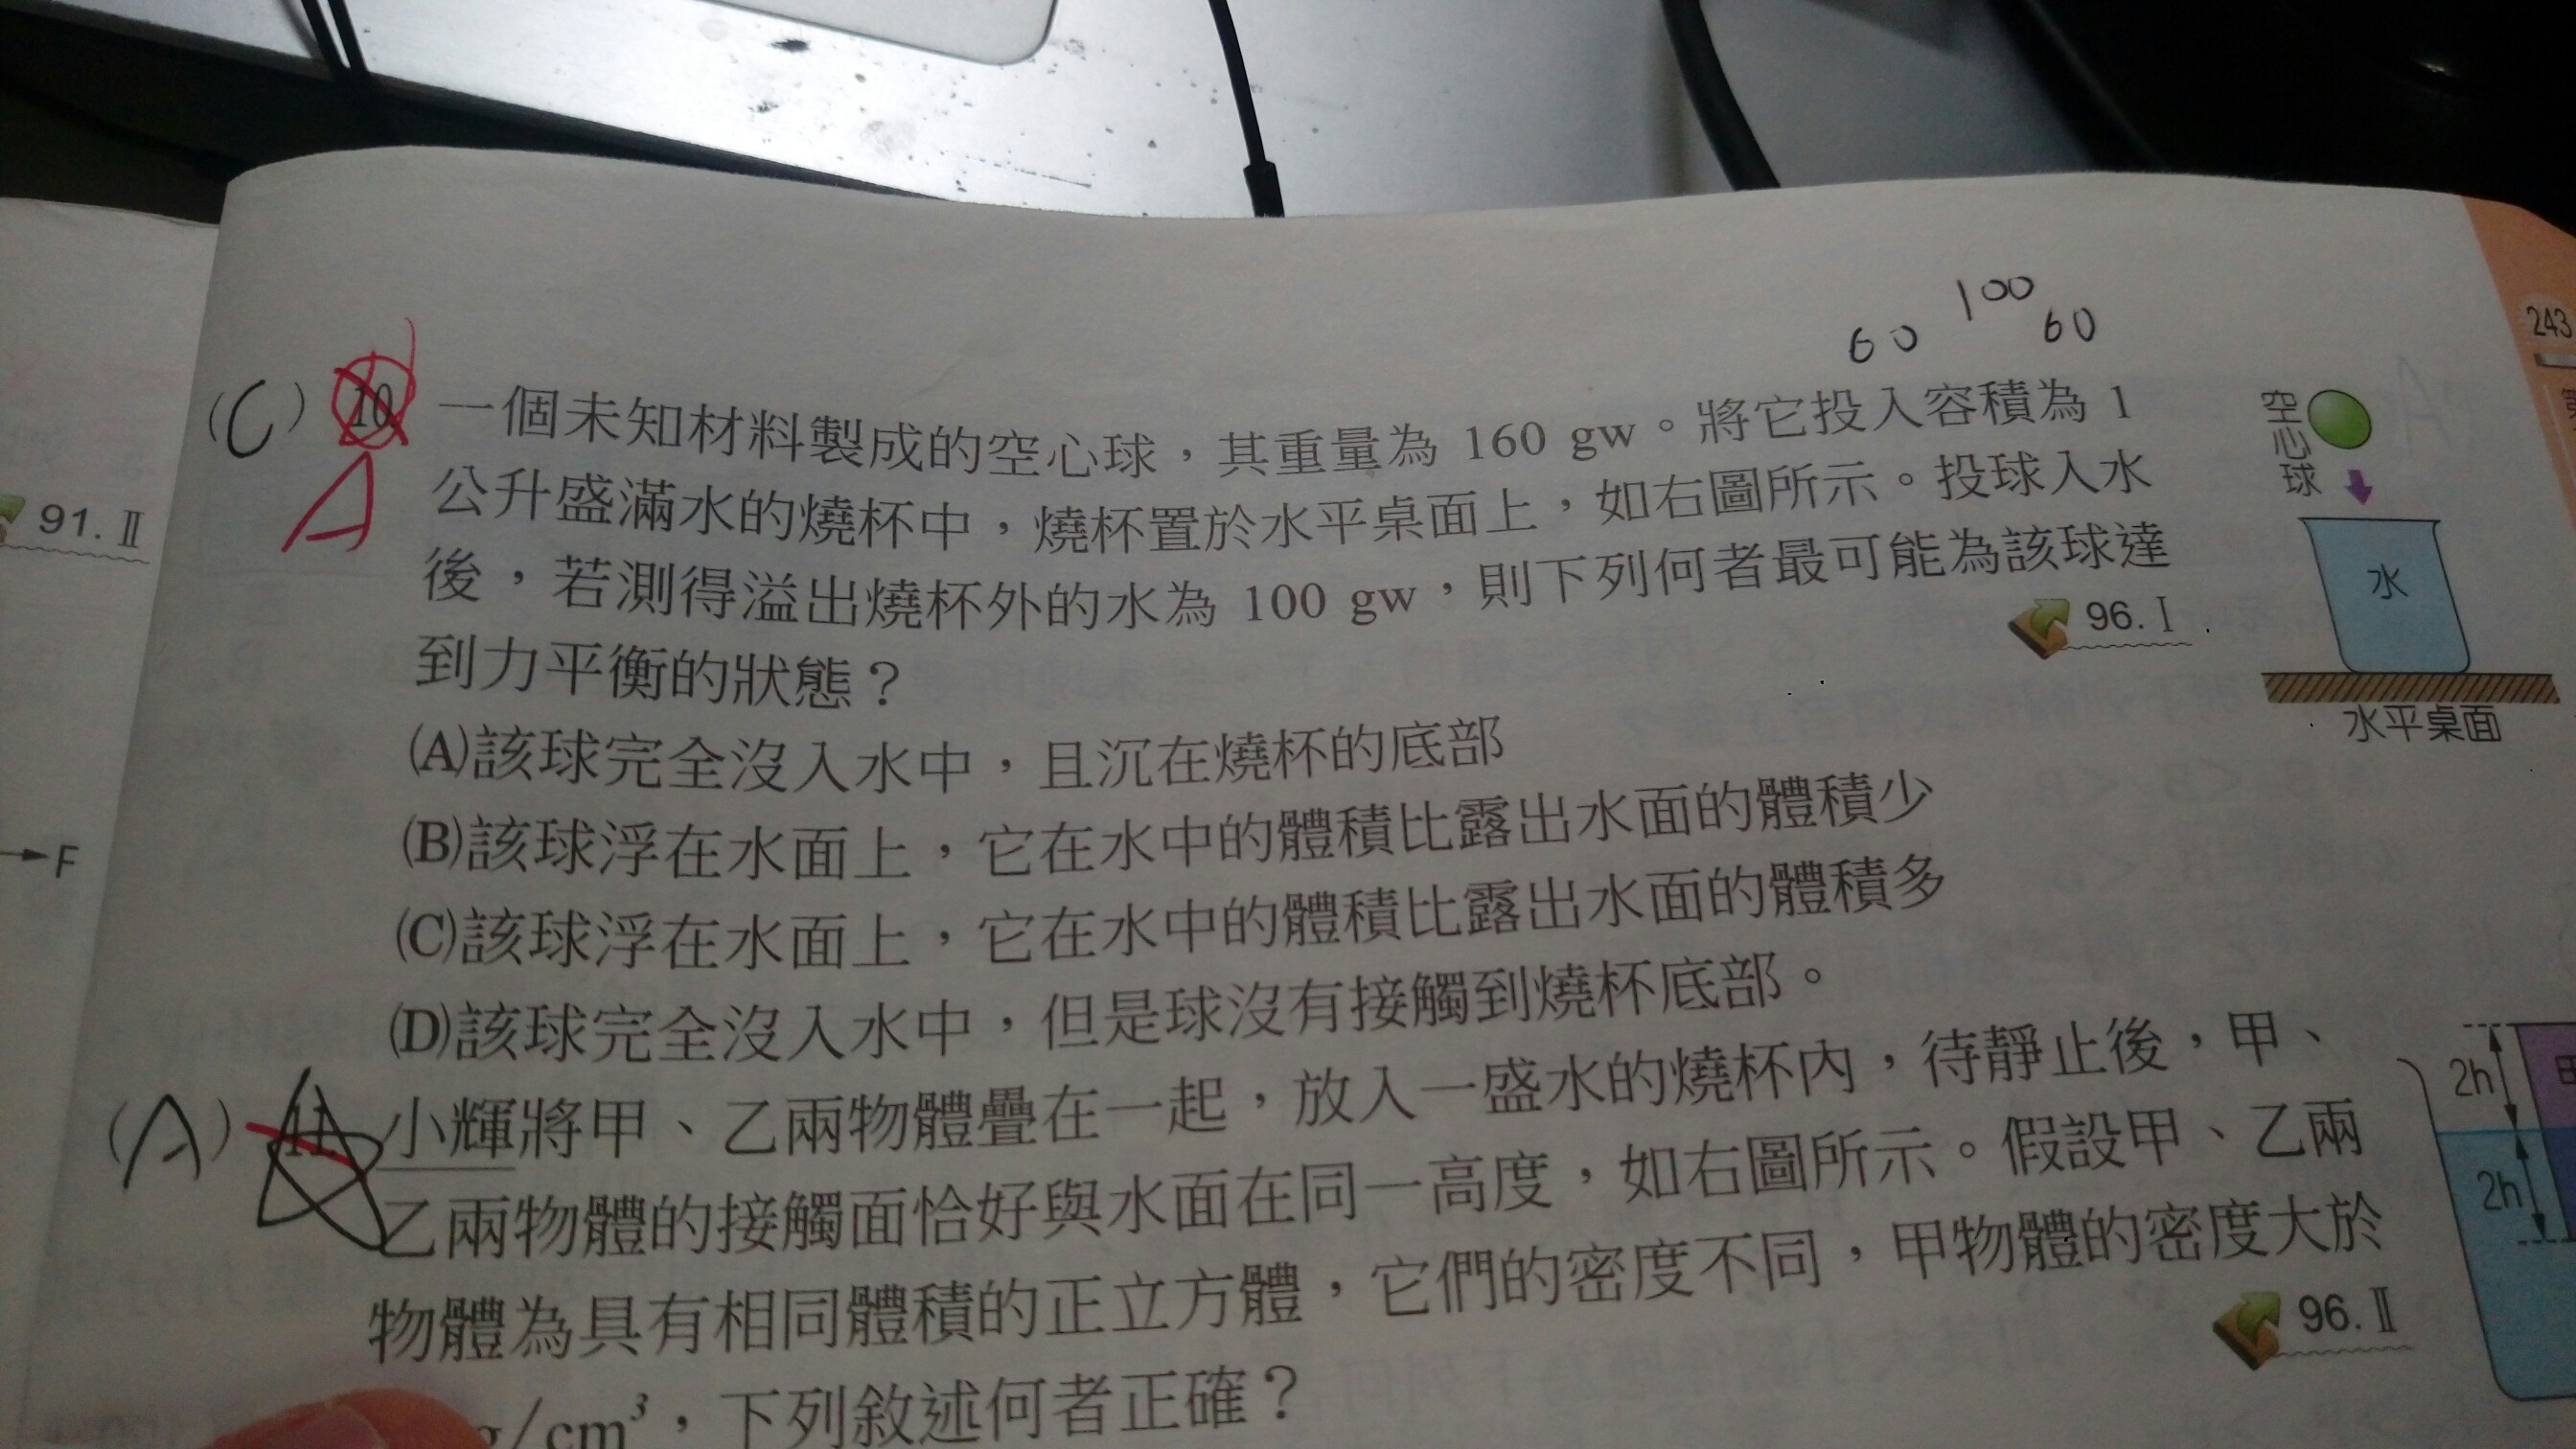 60 100 60
243
(C) 10. 一個未知材料製成的空心球，其重量為 160 gw。將它投入容積為 1
A 公升盛滿水的燒杯中，燒杯置於水平桌面上，如右圖所示。投球入水
後，若測得溢出燒杯外的水為 100 gw，則下列何者最可能為該球達
到力平衡的狀態？ 96.Ⅰ
(A)該球完全沒入水中，且沉在燒杯的底部
(B)該球浮在水面上，它在水中的體積比露出水面的體積少
(C)該球浮在水面上，它在水中的體積比露出水面的體積多
(D)該球完全沒入水中，但是球沒有接觸到燒杯底部。
空心球
水
水平桌面
(A) 11. 小輝將甲、乙兩物體疊在一起，放入一盛水的燒杯內，待靜止後，甲、
乙兩物體的接觸面恰好與水面在同一高度，如右圖所示。假設甲、乙兩
物體為具有相同體積的正立方體，它們的密度不同，甲物體的密度大於
g/cm³，下列敘述何者正確？ 96.Ⅱ
2h
2h
91.Ⅱ
F